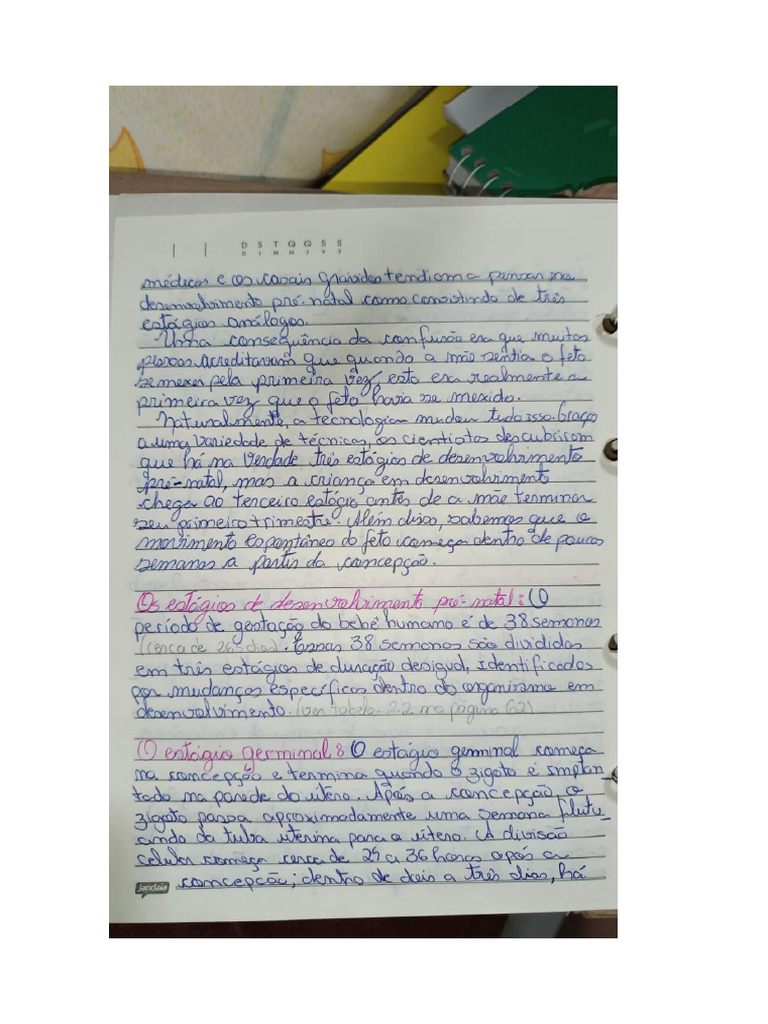 D S T Q Q S S
D L M M J V S
médicos e os casais grávidos tendiam a pensar no
desenvolvimento pré-natal como consistindo de três
estágios análogos.
Uma consequência da confusão era que muitas
pessoas acreditavam que quando a mãe sentia o feto
se mexer pela primeira vez, esta era realmente a
primeira vez que o feto havia se mexido.
Naturalmente, a tecnologia mudou tudo isso. Graças
a uma variedade de técnicas, os cientistas descobriram
que há na verdade três estágios de desenvolvimento
pré-natal, mas a criança em desenvolvimento
chega ao terceiro estágio antes de a mãe terminar
seu primeiro trimestre. Além disso, sabemos que o
movimento espontâneo do feto começa dentro de poucas
semanas a partir da concepção.
Os estágios de desenvolvimento pré-natal: O
período de gestação do bebê humano é de 38 semanas
(cerca de 265 dias). Essas 38 semanas são divididas
em três estágios de duração desigual, identificados
por mudanças específicas dentro do organismo em
desenvolvimento. (ver tabela 2.2 na página 62)
O estágio germinal: O estágio germinal começa
na concepção e termina quando o zigoto é implan
tado na parede do útero. Após a concepção, o
zigoto passa aproximadamente uma semana flutu_
ando da tuba uterina para o útero. A divisão
celular começa cerca de 24 a 36 horas após a
concepção; dentro de dois a três dias, há
Jandaia